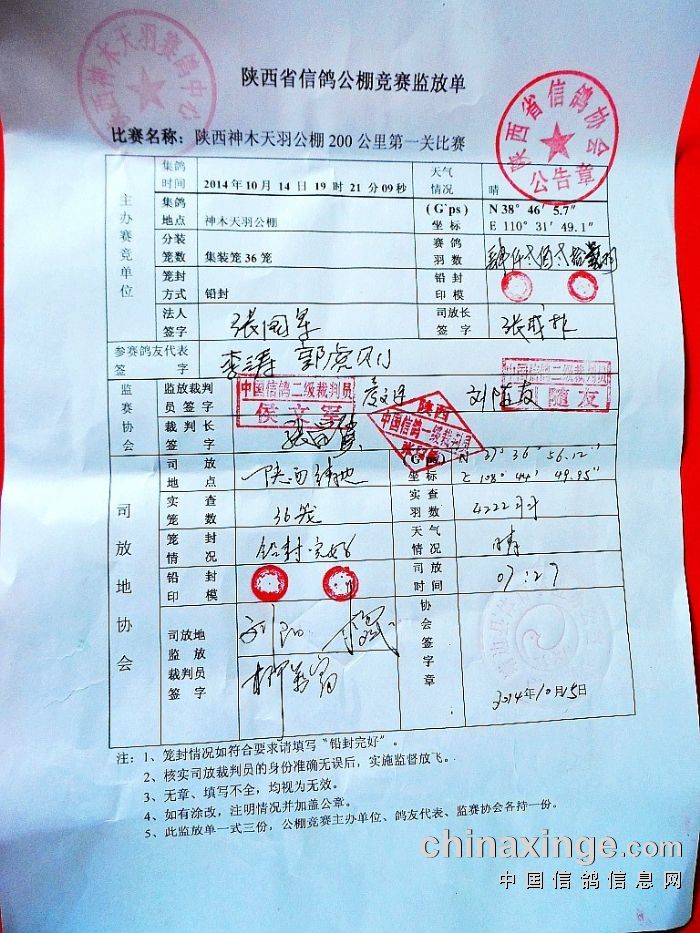 陕西神木天羽赛鸽中心
陕西省信鸽公棚竞赛监放单
陕西省信鸽协会
公告章
比赛名称：陕西神木天羽公棚 200 公里第一关比赛
主办赛竞单位
集鸽时间 2014年10月 14日 19 时 21 分 09秒 天气情况 晴
集鸽地点 神木天羽公棚 (G`ps)坐标 N 38° 46′ 5.7″ E 110° 31′ 49.1″
分装笼数 集装笼36笼 赛鸽羽数
笼封方式 铅封 铅封印模
法人签字 张国军 司放长签字
参赛鸽友代表签字 李涛
监赛协会
监放裁判员签字 中国信鸽二级裁判员 刘随友 中国信鸽二级裁判员 刘随友
裁判长签字 陕西 中国信鸽一级裁判员
司放地协会
司放地点 陕西 (G`ps)坐标 N 37° 36′ 56.12″ E 108° 44′ 49.95″
实查笼数 36笼 实查羽数 4222羽
笼封情况 铅封完好 天气情况 晴
铅封印模 司放时间 07:27
司放地监放裁判员签字 刘阳 协会签字章
2014年10月15日
注：1、笼封情况如符合要求请填写“铅封完好”。
2、核实司放裁判员的身份准确无误后，实施监督放飞。
3、无章、填写不全，均视为无效。
4、如有涂改，注明情况并加盖公章。
5、此监放单一式三份，公棚竞赛主办单位、鸽友代表、监赛协会各持一份。
chinaxinge.com
中国信鸽信息网